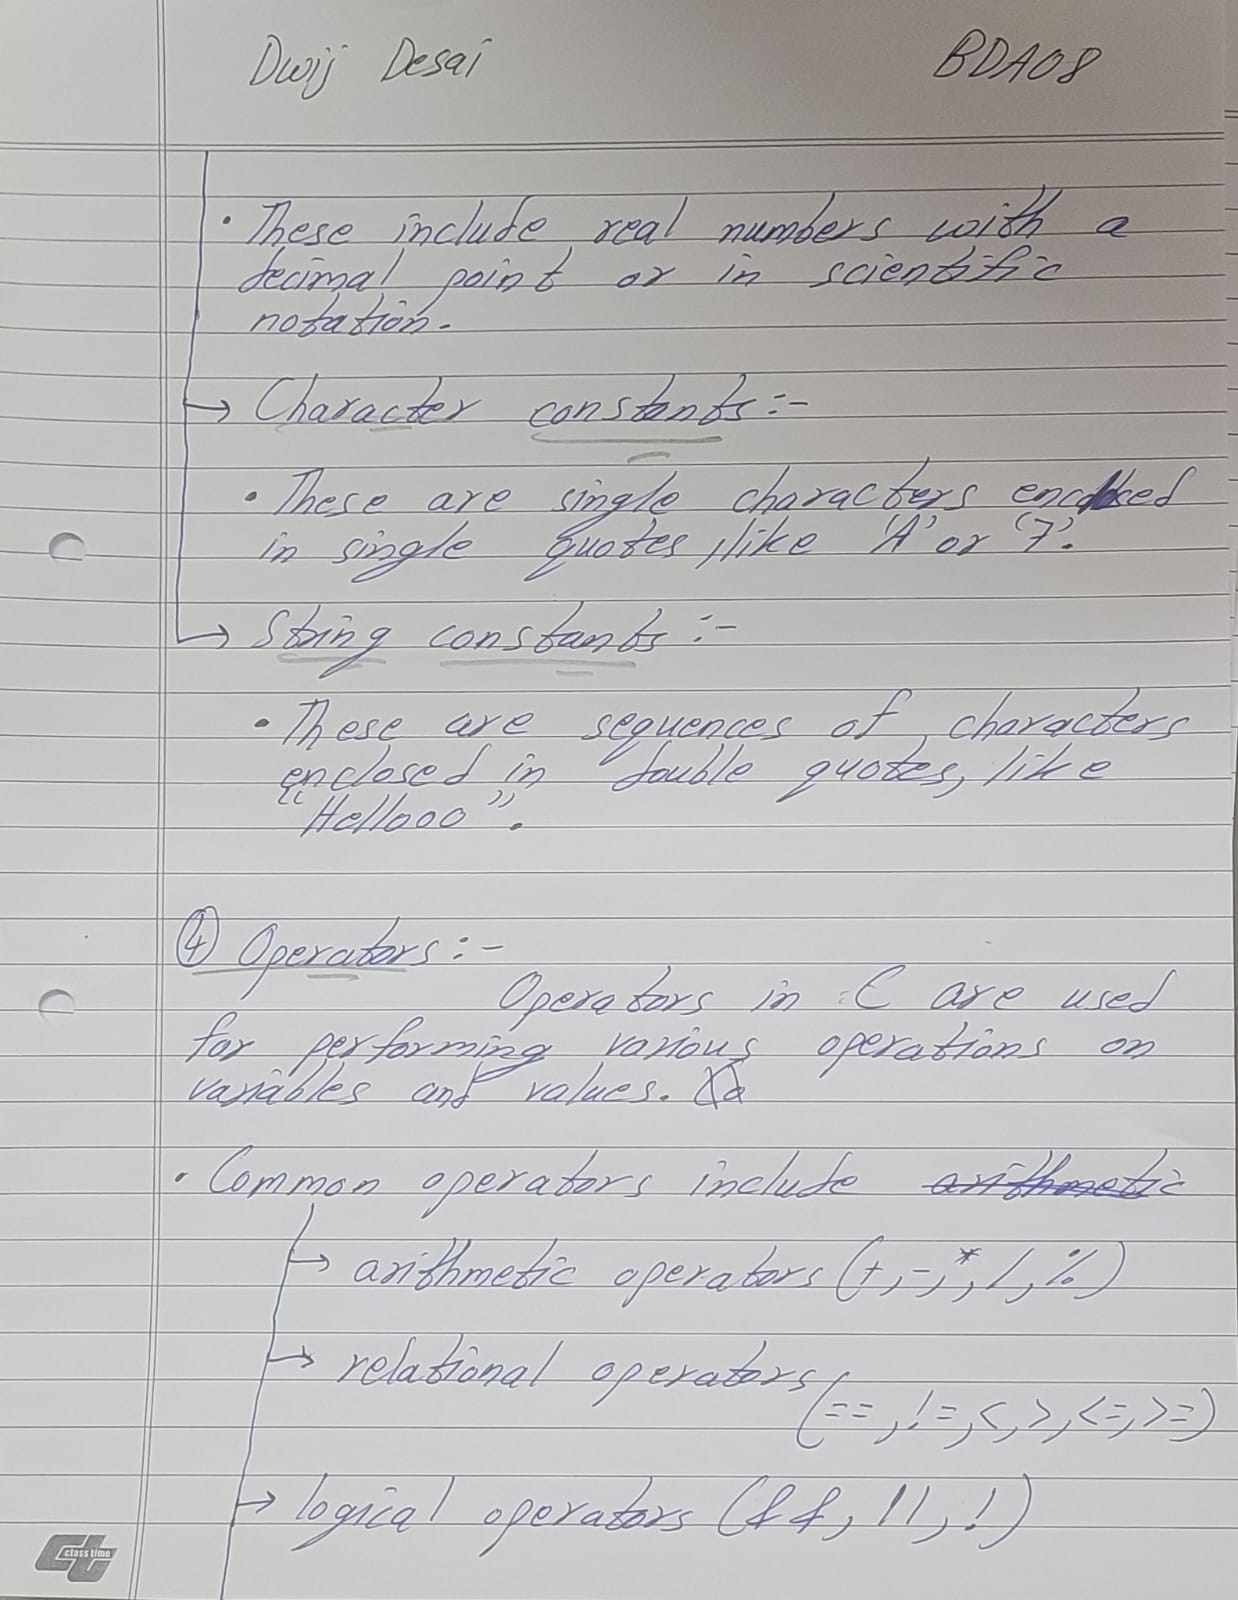 Dwij Desai BDA08
• These include real numbers with a
decimal point or in scientific
notation.
→ Character constants :-
• These are single characters enclosed
in single quotes, like 'A' or '7'.
→ String constants :-
• These are sequences of characters
enclosed in double quotes, like
"Hellooo".
④ Operators :-
Operators in C are used
for performing various operations on
variables and values.
• Common operators include arithmetic
→ arithmetic operators (+, -, *, /, %)
→ relational operators
(==, !=, <, >, <=, >=)
→ logical operators (&&, ||, !)
ct class time